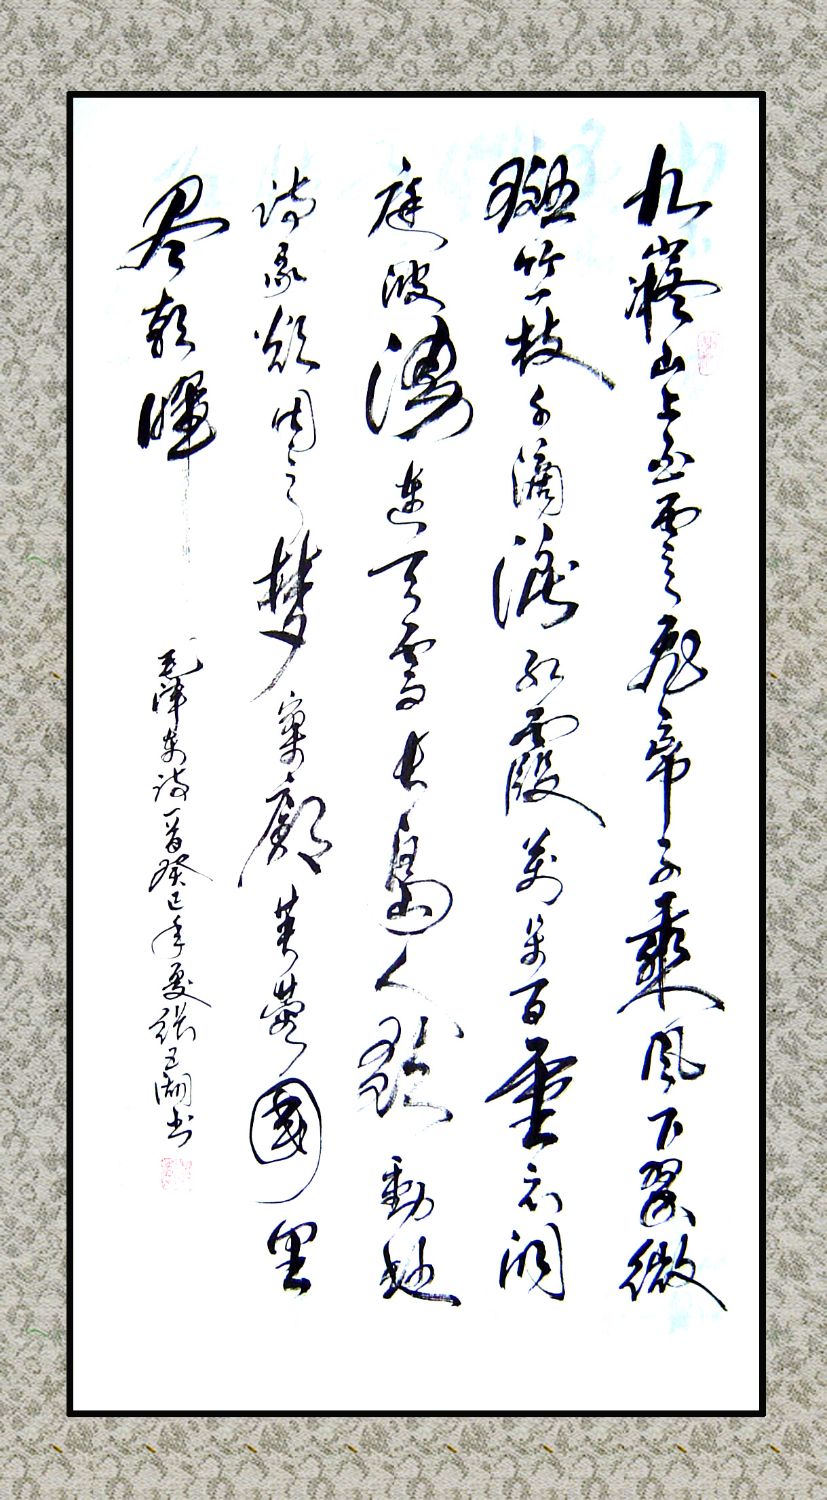 九嶷山上白雲飛帝子乘風下翠微
斑竹一枝千滴淚紅霞萬朵百重衣洞
庭波湧連天雪長島人歌動地
詩我欲因之夢寥廓芙蓉國里
尽朝暉
毛澤東詩一首癸巳年夏張湖书